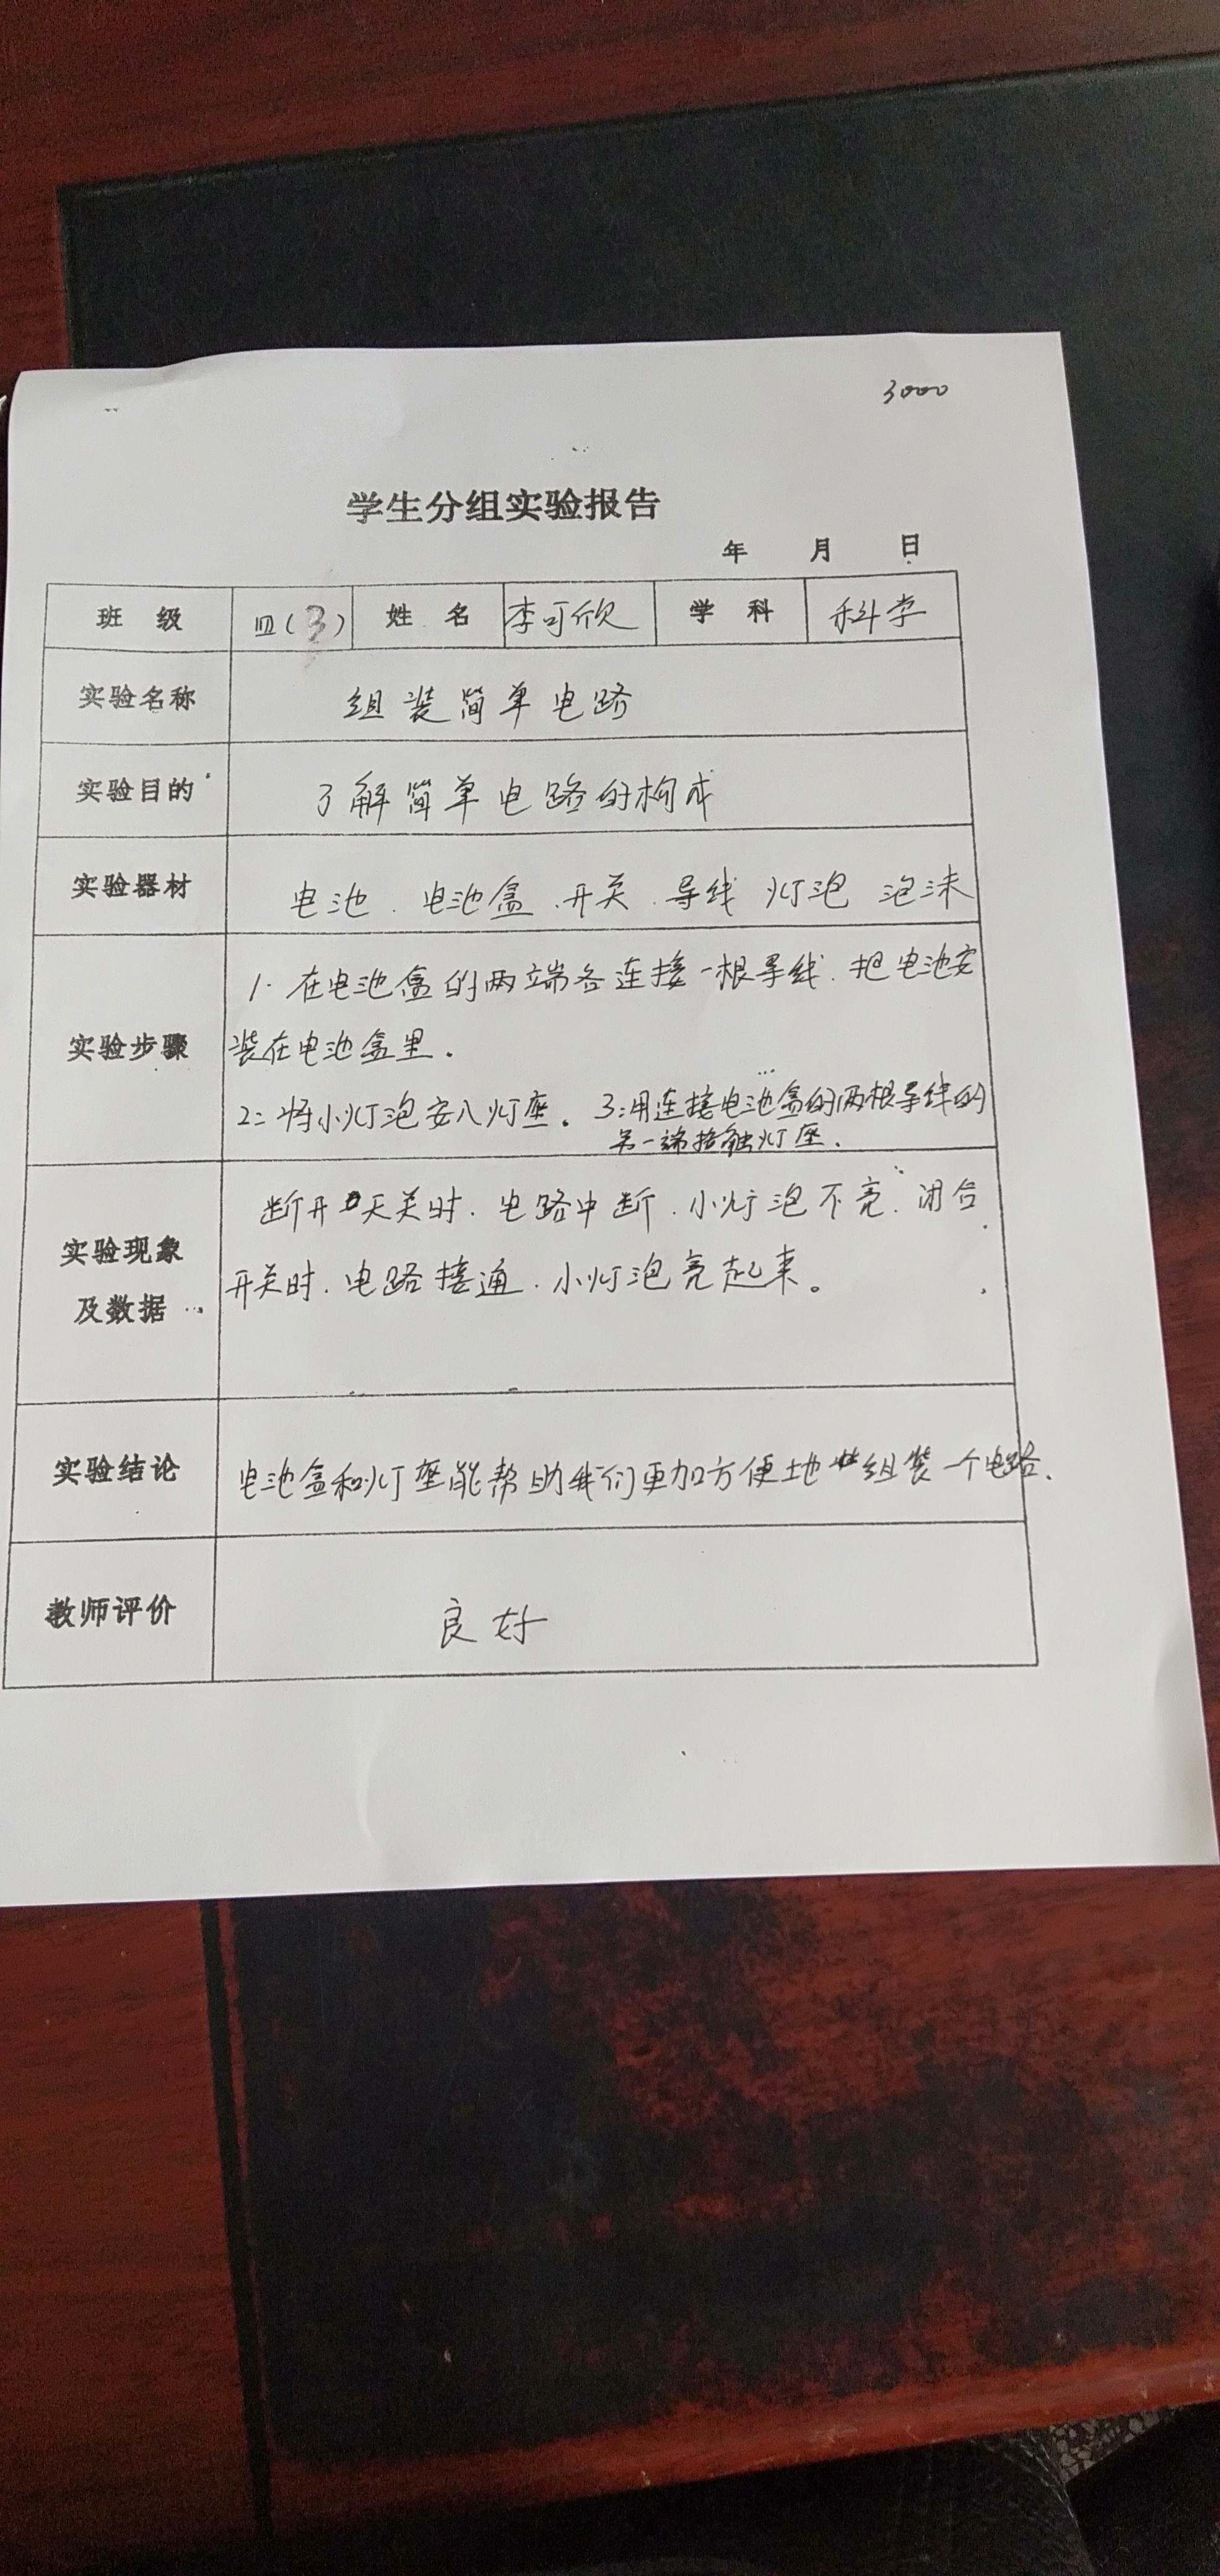 3000
学生分组实验报告
年 月 日
班 级 四(3) 姓 名 李可欣 学 科 科学
实验名称 组装简单电路
实验目的 了解简单电路的构成
实验器材 电池、电池盒、开关、导线 灯泡 泡沫
实验步骤
1. 在电池盒的两端各连接一根导线.把电池安
装在电池盒里.
2:将小灯泡安入灯座。3:用连接电池盒的两根导线的
另一端接触灯座.
实验现象
及数据
断开天关时.电路中断.小灯泡不亮.闭合
开关时.电路接通.小灯泡亮起来。
实验结论 电池盒和灯座能帮助我们更加方便地组装一个电路.
教师评价 良好